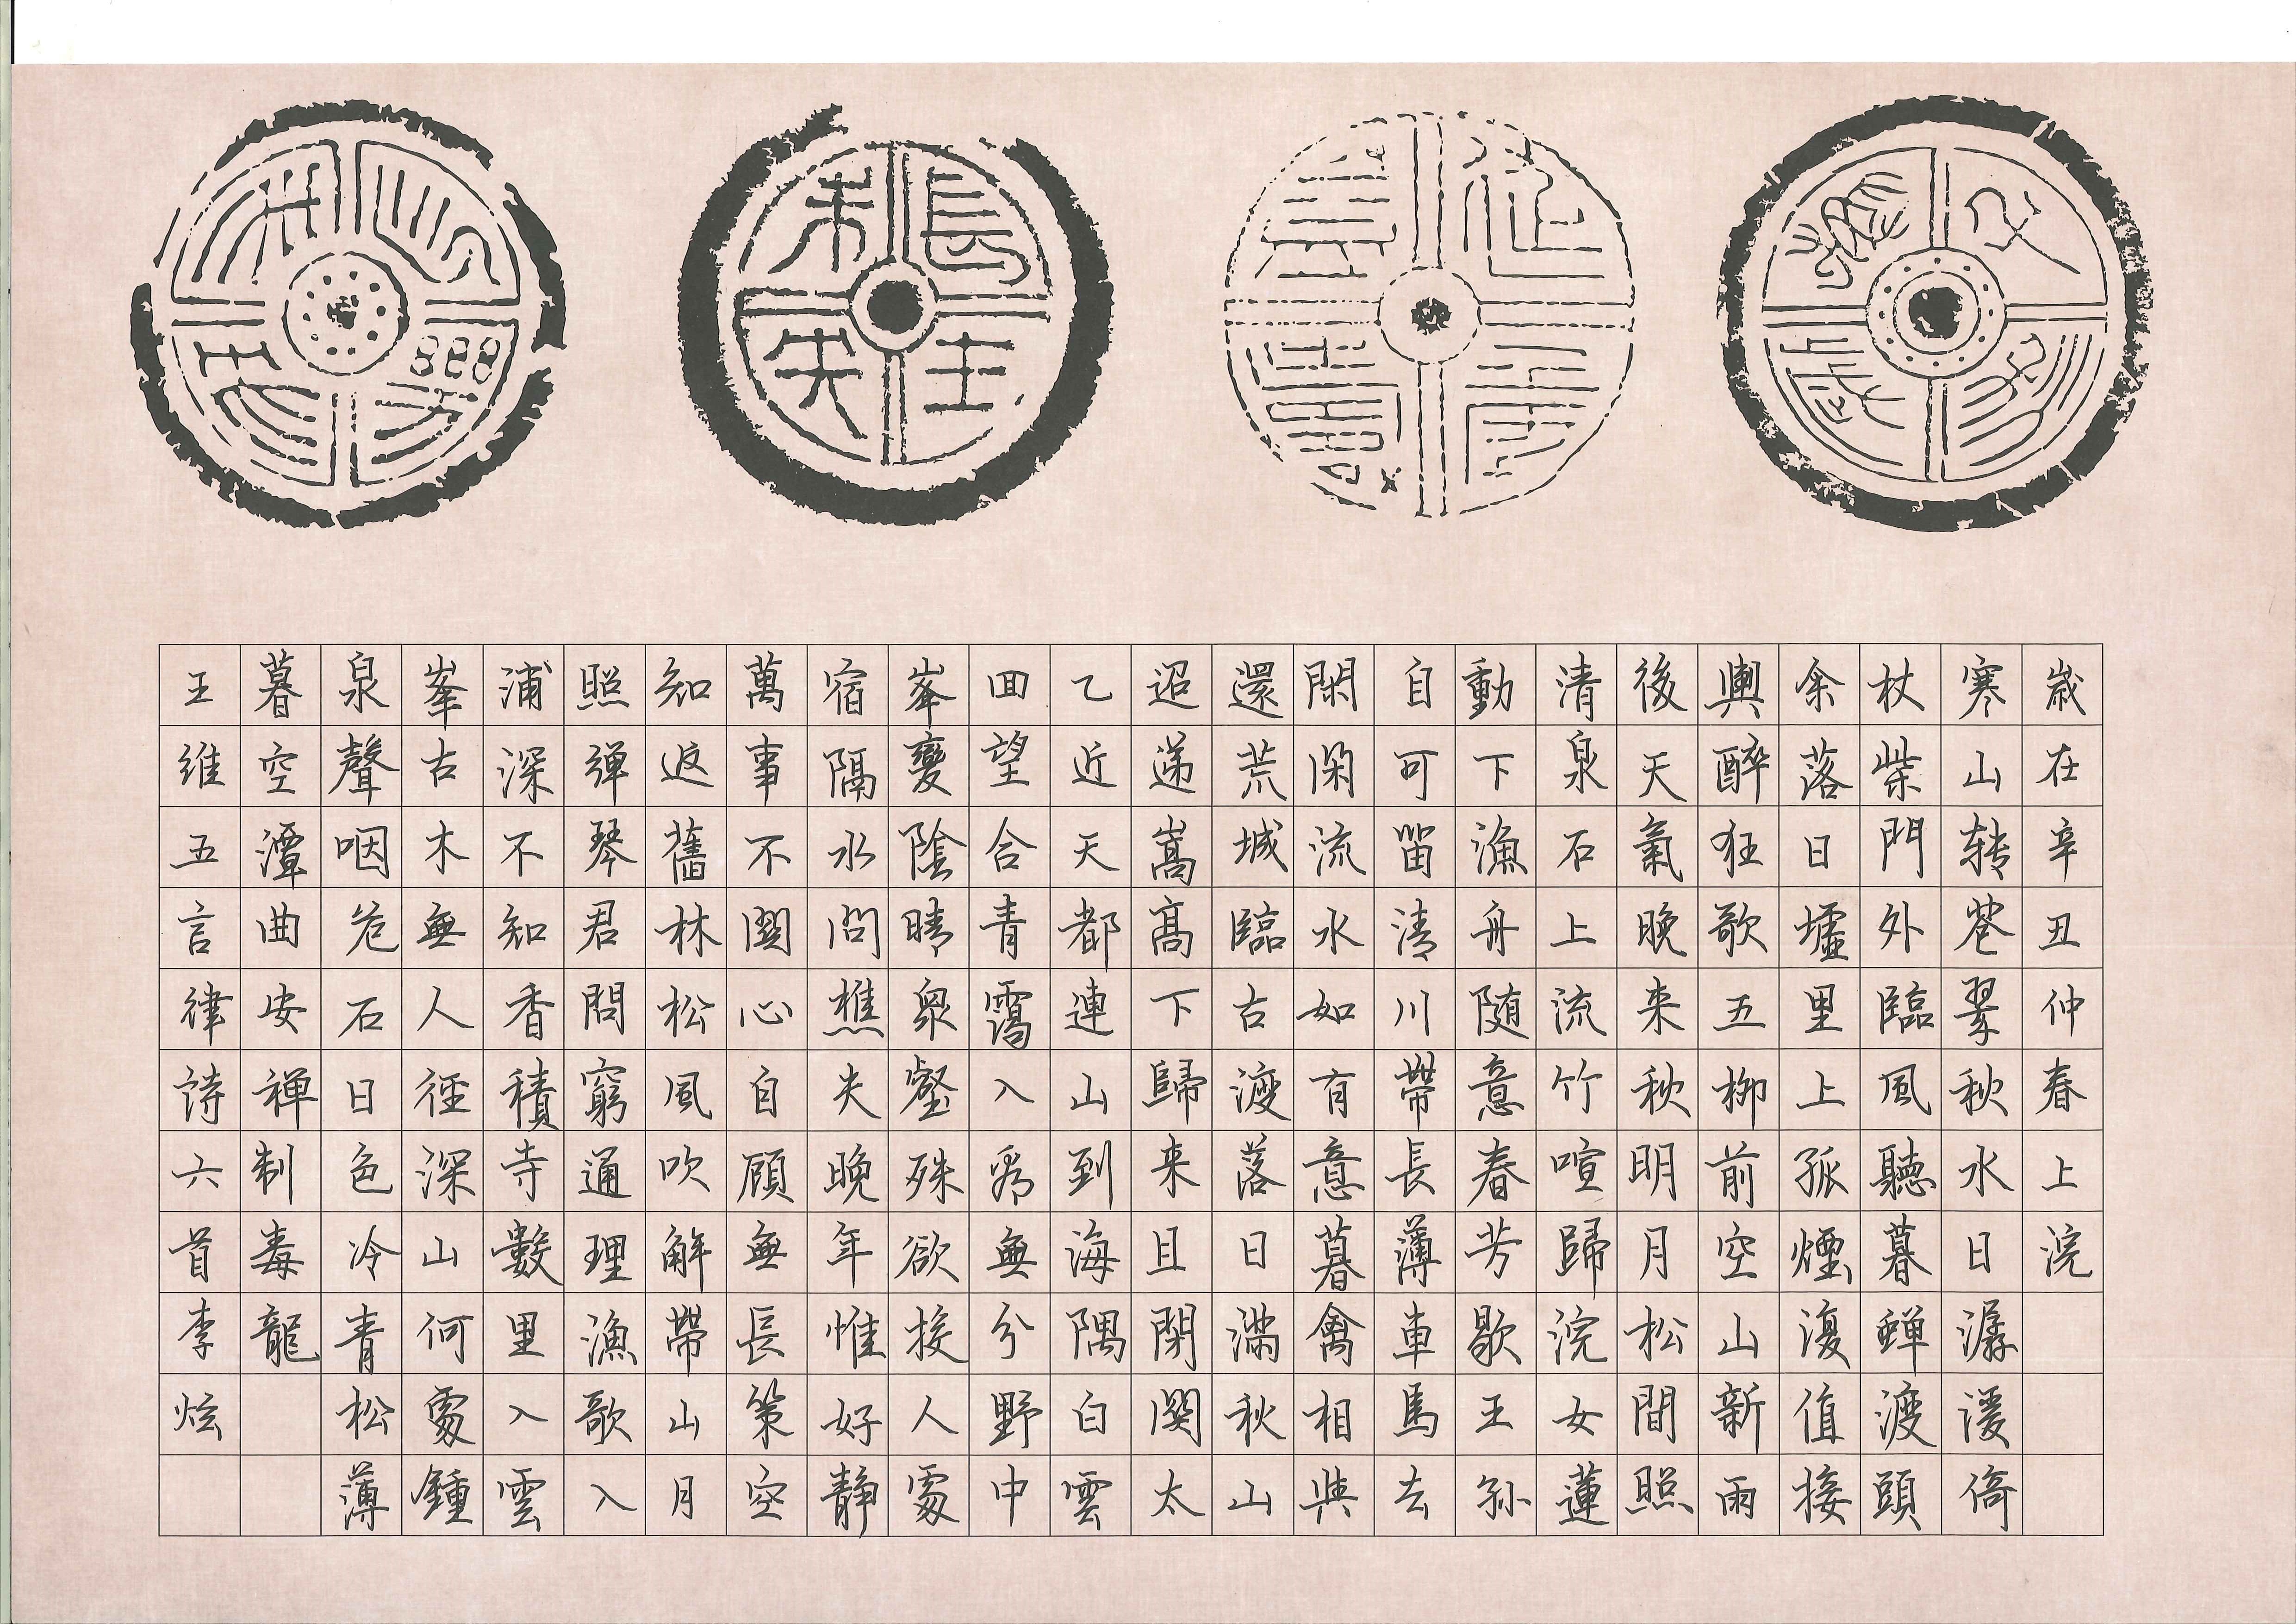 長生未央
歲在辛丑仲春上浣
寒山转蒼翠秋水日潺湲倚
杖柴門外臨風聽暮蟬渡頭
余落日墟里上孤煙復值接
輿醉狂歌五柳前空山新雨
後天氣晚来秋明月松間照
清泉石上流竹喧歸浣女蓮
動下漁舟随意春芳歇王孫
自可留清川帶長薄車馬去
閑閑流水如有意暮禽相與
還荒城臨古渡落日滿秋山
迢递嵩高下歸来且閉關太
乙近天都連山到海隅白雲
回望合青靄入看無分野中
峯變陰晴衆壑殊欲投人處
宿隔水問樵夫晚年惟好静
萬事不關心自顧無長策空
知返舊林松風吹解帶山月
照弹琴君問窮通理漁歌入
浦深不知香積寺數里入雲
峯古木無人徑深山何處鍾
泉聲咽危石日色冷青松薄
暮空潭曲安禅制毒龍
王維五言律詩六首李炫